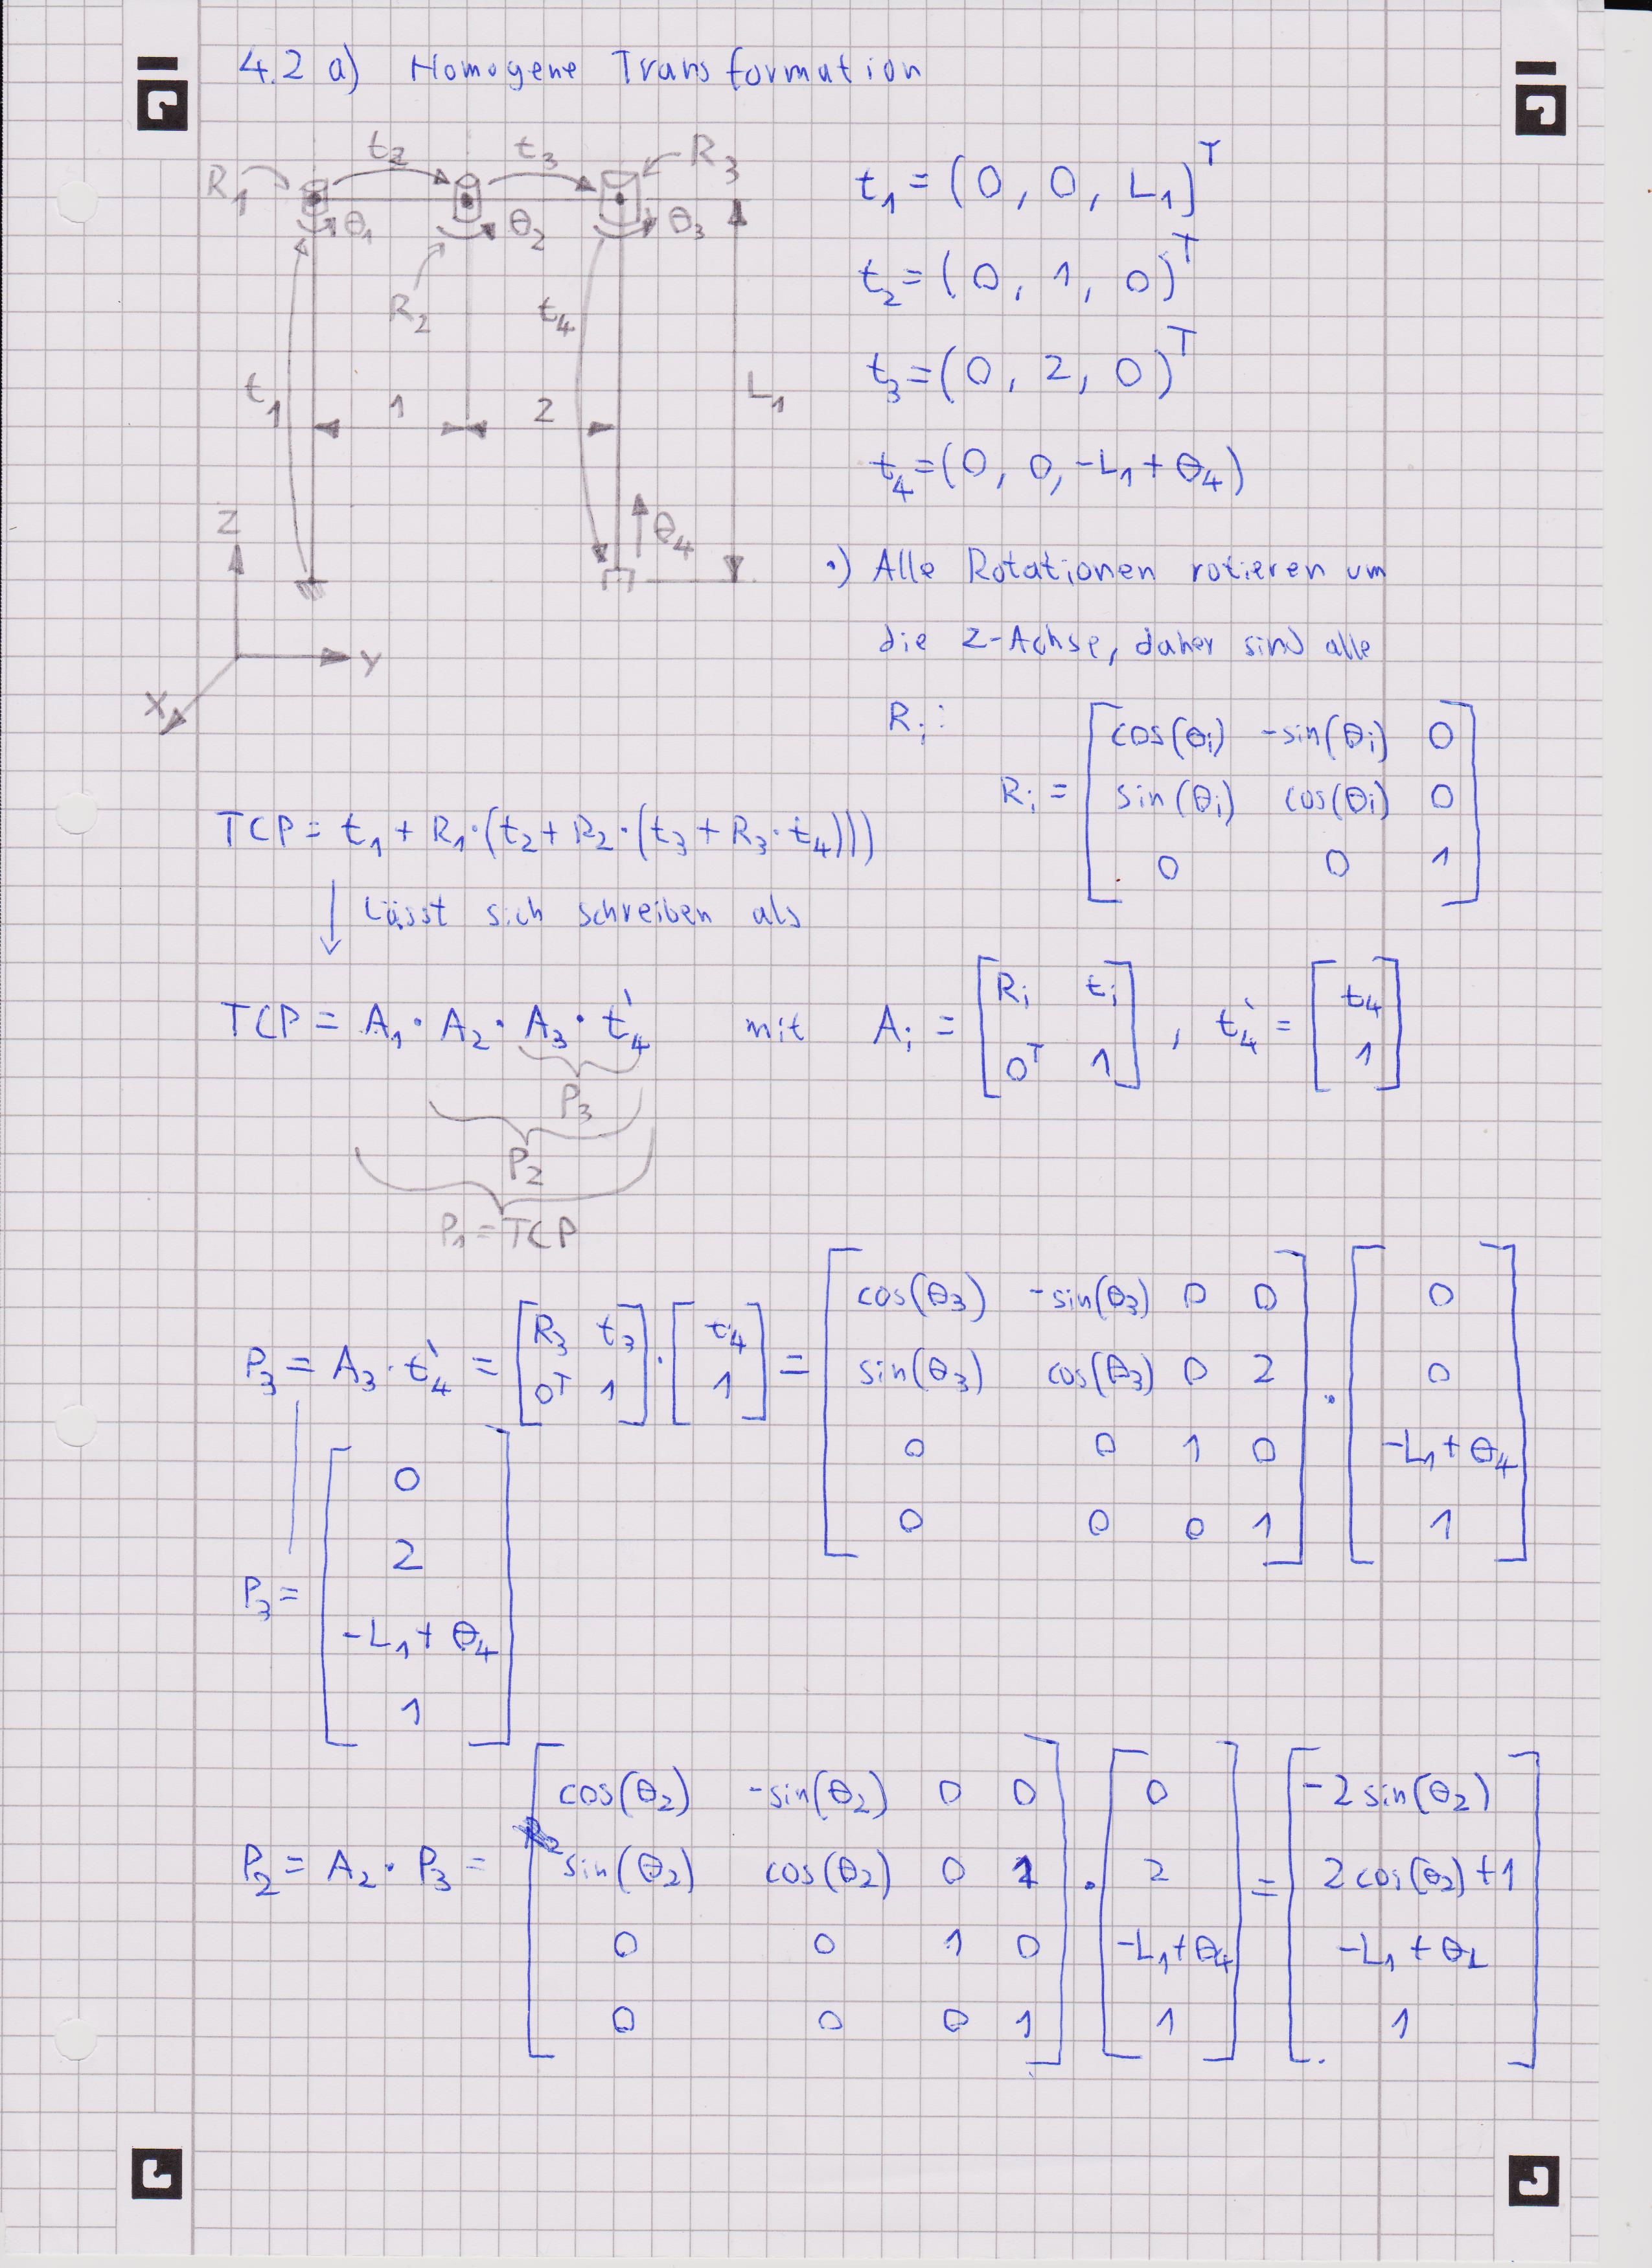 4.2 a) Homogene Transformation
t₂ t₃ R₃
R₁ θ₁ θ₂ θ₃
R₂ t₄
t₁ 1 2 L₁
Z θ₄
Y
X
t₁ = (0, 0, L₁)ᵀ
t₂ = (0, 1, 0)ᵀ
t₃ = (0, 2, 0)ᵀ
t₄ = (0, 0, -L₁ + θ₄)
•) Alle Rotationen rotieren um
die z-Achse, daher sind alle
Rᵢ:
Rᵢ = [ cos(θᵢ) -sin(θᵢ) 0
sin(θᵢ) cos(θᵢ) 0
0 0 1 ]
TCP = t₁ + R₁·(t₂ + R₂·(t₃ + R₃·t₄)))
↓ Lässt sich schreiben als
TCP = A₁ · A₂ · A₃ · t₄' mit Aᵢ = [ Rᵢ tᵢ
0ᵀ 1 ] , t₄' = [ t₄
1 ]
P₃
P₂
P₁ = TCP
P₃ = A₃ · t₄' = [ R₃ t₃
0ᵀ 1 ] · [ t₄
1 ] = [ cos(θ₃) -sin(θ₃) 0 0
sin(θ₃) cos(θ₃) 0 2
0 0 1 0
0 0 0 1 ] · [ 0
0
-L₁ + θ₄
1 ]
P₃ = [ 0
2
-L₁ + θ₄
1 ]
P₂ = A₂ · P₃ = [ cos(θ₂) -sin(θ₂) 0 0
sin(θ₂) cos(θ₂) 0 1
0 0 1 0
0 0 0 1 ] · [ 0
2
-L₁ + θ₄
1 ] = [ -2 sin(θ₂)
2 cos(θ₂) + 1
-L₁ + θ₄
1 ]